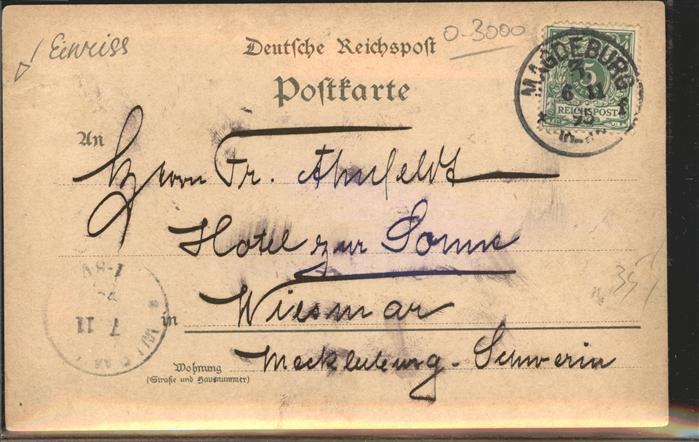 Einriss
0-3000
Deutsche Reichspost
Postkarte
MAGDEBURG
6 11
95
5
REICHSPOST
An
Herrn Fr. Ahnfeldt
Hotel zur Sonne
in Wiesmar
Mecklenburg-Schwerin
Wohnung
(Straße und Hausnummer)
7 11
1-8V
35,-